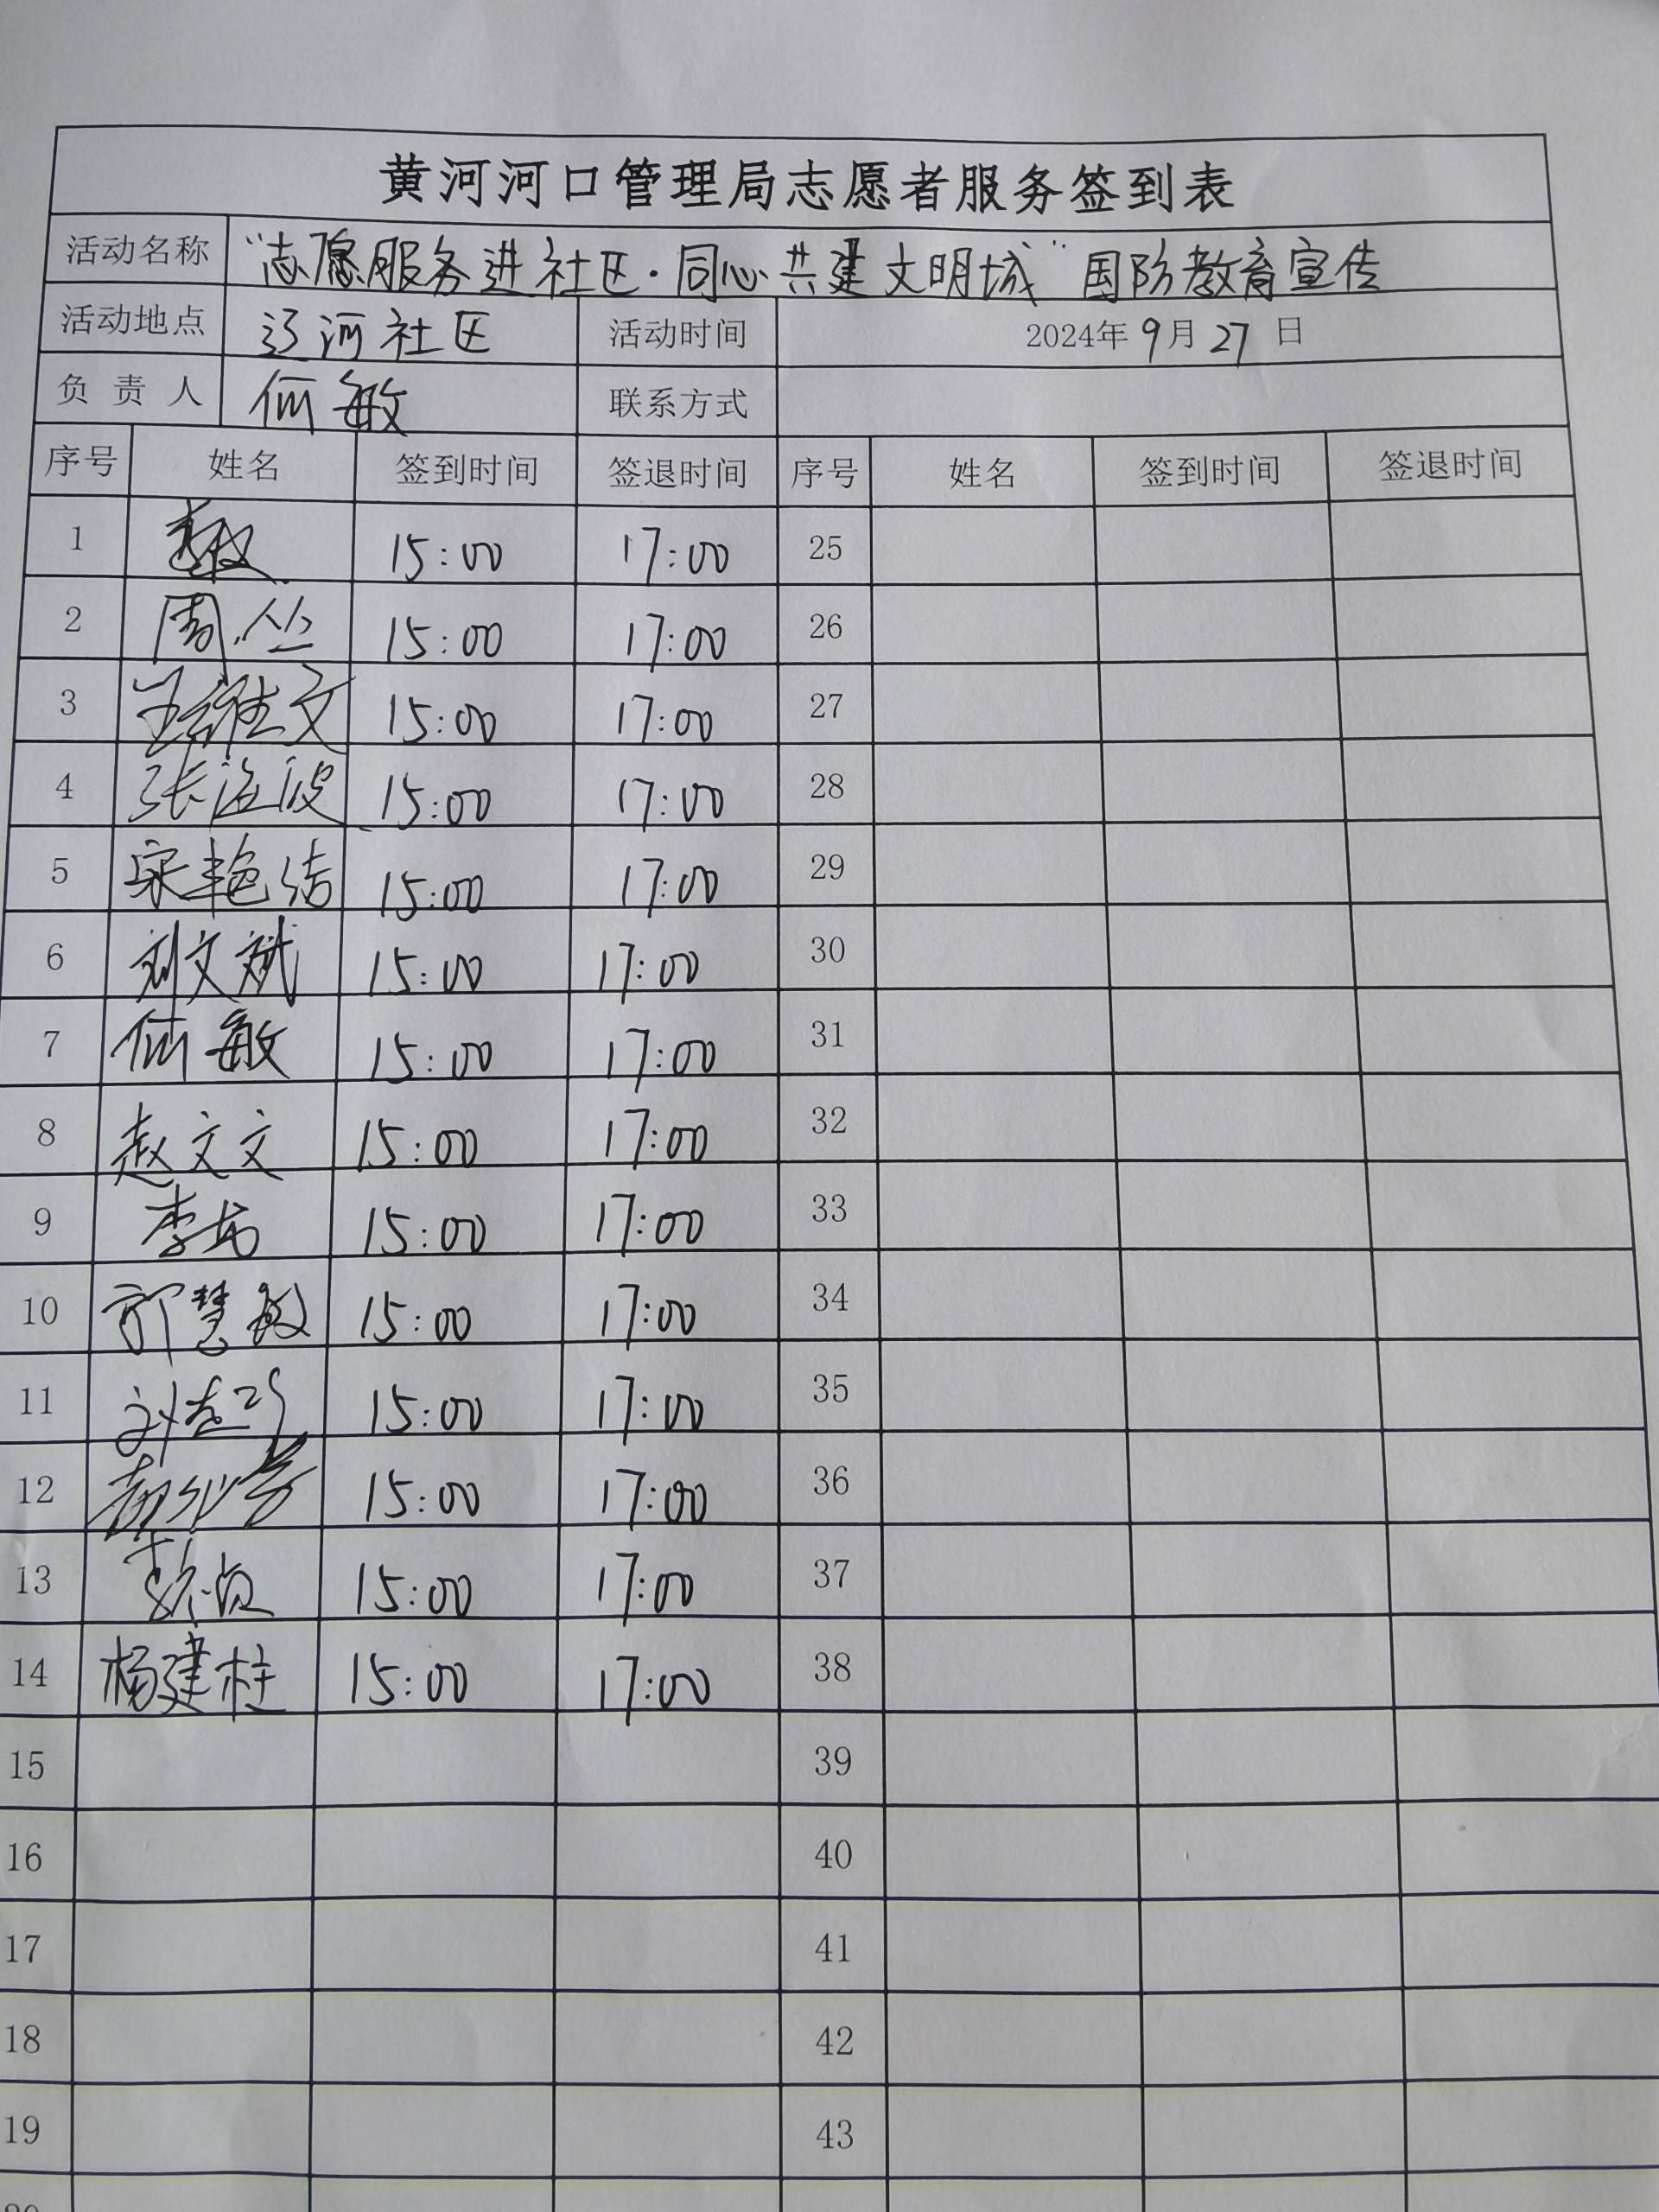 黄河河口管理局志愿者服务签到表
活动名称 “志愿服务进社区·同心共建文明城”国防教育宣传
活动地点 辽河社区 活动时间 2024年9月27日
负责人 何敏 联系方式
序号 姓名 签到时间 签退时间 序号 姓名 签到时间 签退时间
1 15:00 17:00 25
2 周丛 15:00 17:00 26
3 王维文 15:00 17:00 27
4 张海波 15:00 17:00 28
5 宋艳洁 15:00 17:00 29
6 刘文斌 15:00 17:00 30
7 何敏 15:00 17:00 31
8 赵文文 15:00 17:00 32
9 李 15:00 17:00 33
10 郭慧敏 15:00 17:00 34
11 刘 15:00 17:00 35
12 15:00 17:00 36
13 15:00 17:00 37
14 杨建柱 15:00 17:00 38
15 39
16 40
17 41
18 42
19 43